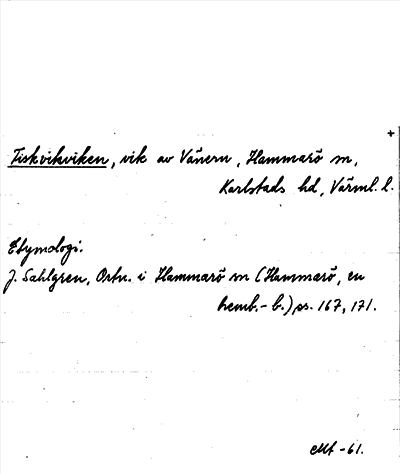 +
Tiskvikviken, vik av Vänern, Hammarö sn,
Karlstads hd, Värml. l.
Etymologi:
J. Sahlgren, Ortn. i Hammarö sn (Hammarö, en
hemb.-b.), ss. 167, 171.
-61.